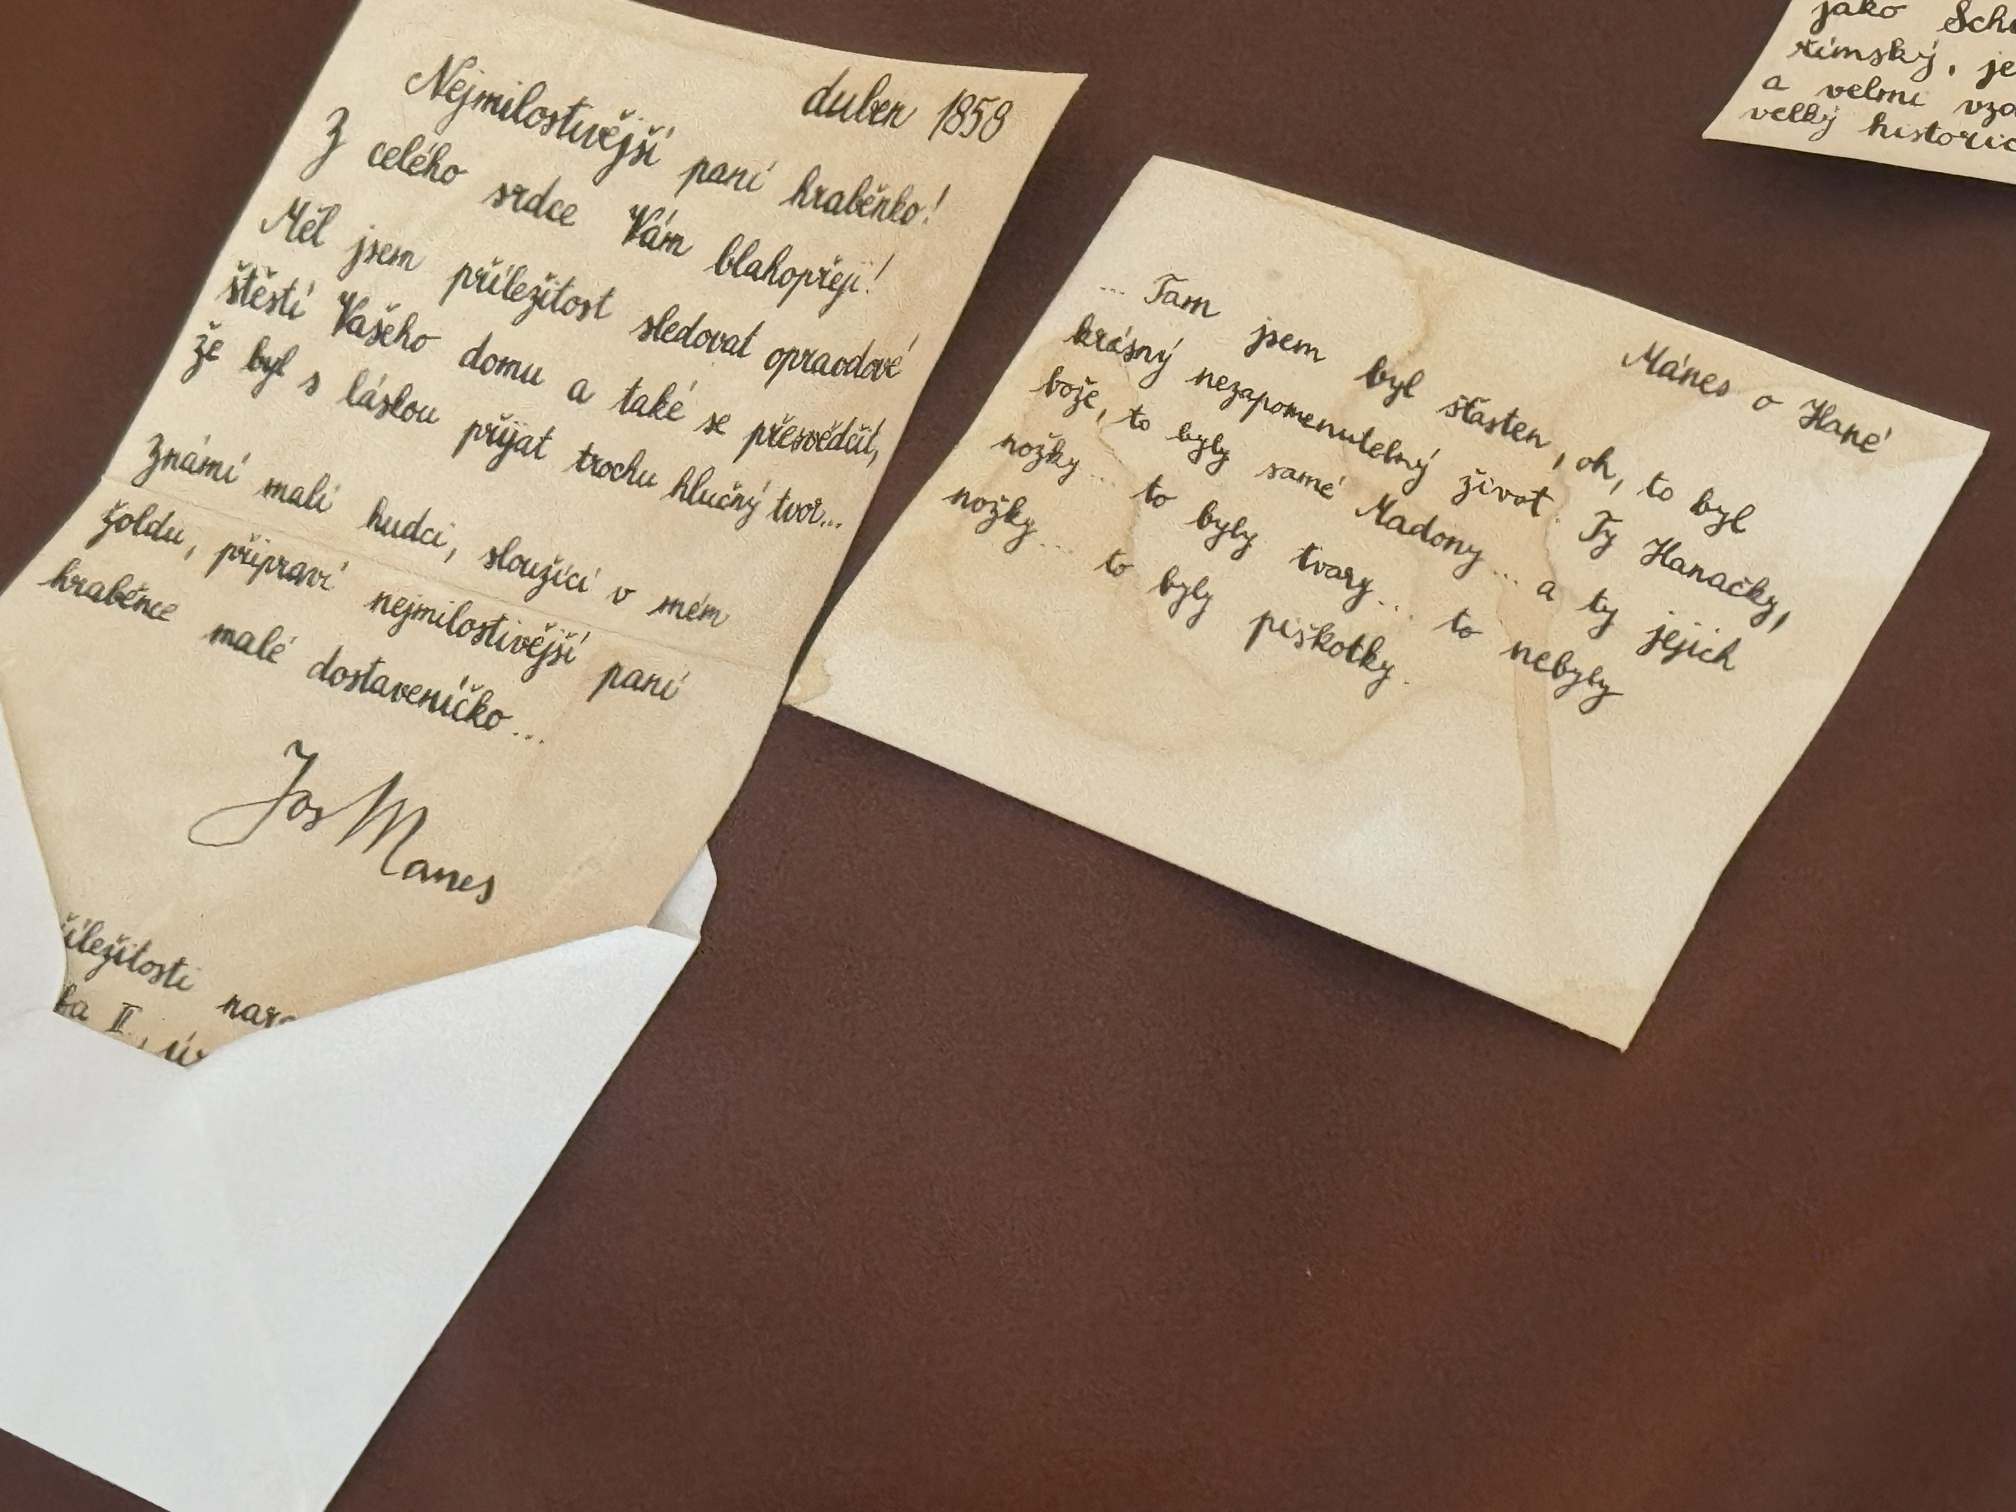 duben 1858
Nejmilostivější paní hraběnko!
Z celého srdce Vám blahopřeji!
Měl jsem příležitost sledovat opravdové
štěstí Vašeho domu a také se přesvědčit,
že byl s láskou přijat trochu hlučný tvor...
Známí malí hudci, sloužící v mém
žoldu, připraví nejmilostivější paní
hraběnce malé dostaveníčko...
Jos Manes
íležitosti
II.
Mánes o Hané
... Tam jsem byl šťasten, oh, to byl
krásný nezapomenutelný život. Ty Hanačky,
bože, to byly samé Madony... a ty jejich
nožky... to byly tvary... to nebyly
nožky... to byly piškotky.
jako
římský, je
a velmi
velký